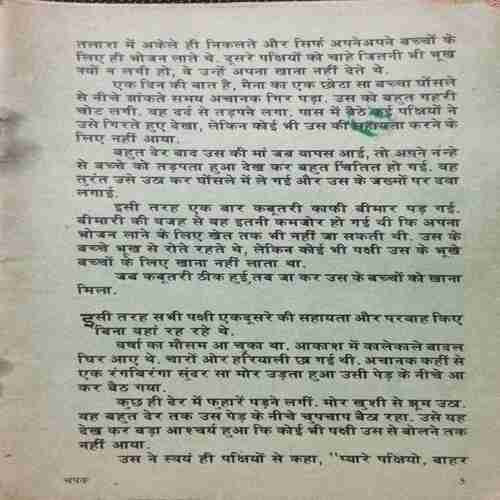 तलाश में अकेले ही निकलते और सिर्फ अपनेअपने बच्चों के
लिए ही भोजन लाते थे. दूसरे पक्षियों को चाहे जितनी भी भूख
क्यों न लगी हो, वे उन्हें अपना खाना नहीं देते थे.
एक दिन की बात है, मैना का एक छोटा सा बच्चा घोंसले
से नीचे झांकते समय अचानक गिर पड़ा. उस को बहुत गहरी
चोट लगी. वह दर्द से तड़पने लगा. पास में बैठे कई पक्षियों ने
उसे गिरते हुए देखा, लेकिन कोई भी उस की सहायता करने के
लिए नहीं आया.
बहुत देर बाद उस की मां जब वापस आई, तो अपने नन्हे
से बच्चे को तड़पता हुआ देख कर बहुत चिंतित हो गई. वह
तुरंत उसे उठा कर घोंसले में ले गई और उस के जख्मों पर दवा
लगाई.
इसी तरह एक बार कबूतरी काफी बीमार पड़ गई.
बीमारी की वजह से वह इतनी कमजोर हो गई थी कि अपना
भोजन लाने के लिए खेत तक भी नहीं जा सकती थी. उस के
बच्चे भूख से रोते रहते थे, लेकिन कोई भी पक्षी उस के भूखे
बच्चों के लिए खाना नहीं लाता था.
जब कबूतरी ठीक हुई तब जा कर उस के बच्चों को खाना
मिला.
इसी तरह सभी पक्षी एकदूसरे की सहायता और परवाह किए
बिना वहां रह रहे थे.
वर्षा का मौसम आ चुका था. आकाश में कालेकाले बादल
घिर आए थे. चारों ओर हरियाली छा गई थी. अचानक कहीं से
एक रंगबिरंगा सुंदर सा मोर उड़ता हुआ उसी पेड़ के नीचे आ
कर बैठ गया.
कुछ ही देर में फुहारें पड़ने लगीं. मोर खुशी से झूम उठा.
वह बहुत देर तक उस पेड़ के नीचे चुपचाप बैठा रहा. उसे यह
देख कर बड़ा आश्चर्य हुआ कि कोई भी पक्षी उस से बोलने तक
नहीं आया.
उस ने स्वयं ही पक्षियों से कहा, "प्यारे पक्षियो, बाहर
चंपक